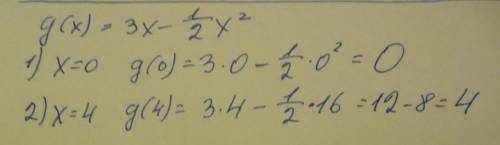 g(x) = 3x - 1/2 x²
1) x=0 g(0) = 3·0 - 1/2 · 0² = 0
2) x=4 g(4) = 3·4 - 1/2 · 16 = 12 - 8 = 4